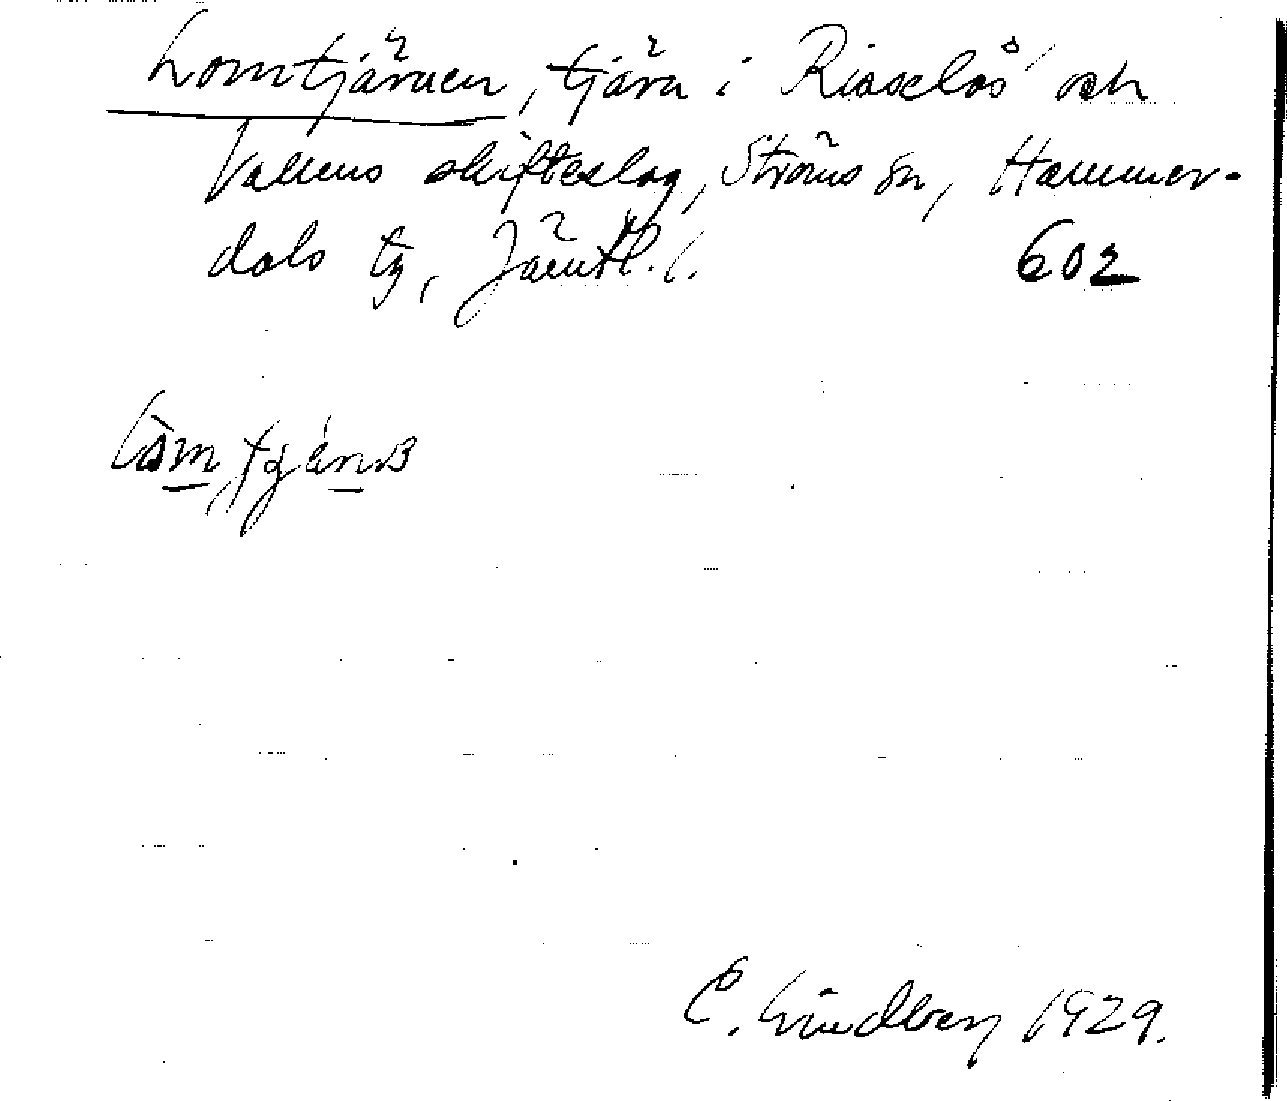 Lomtjärnen, tjärn i Risselås och
Vallens skifteslag, Ströms sn, Hammer-
dals tg, Jämtl. l. 602
E. Lindberg 1929.